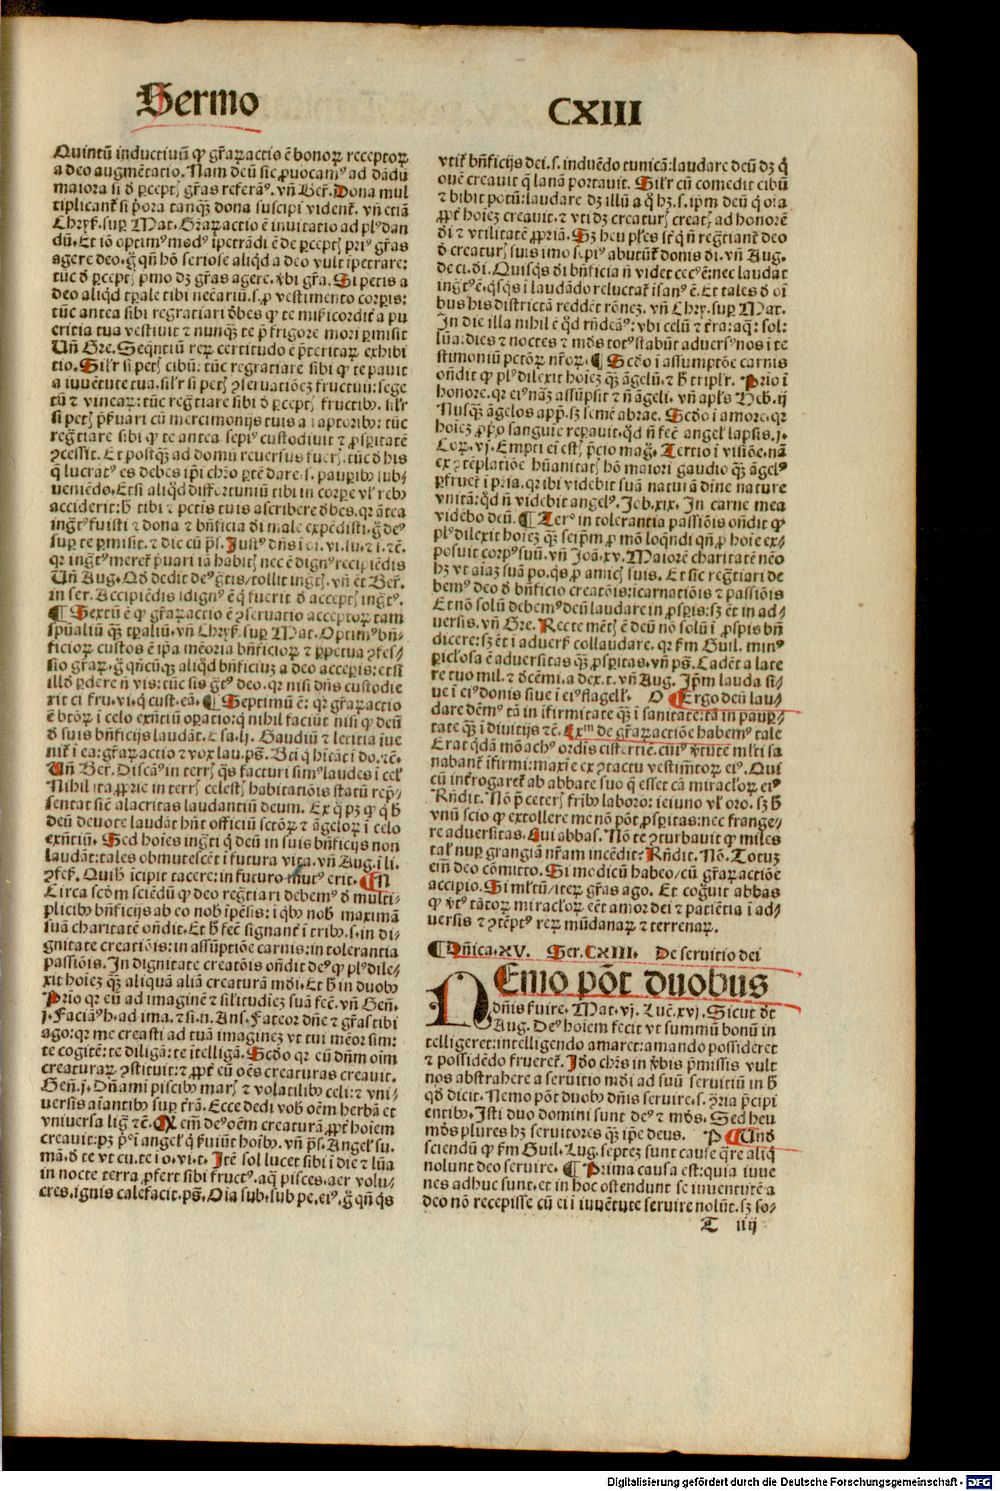 Sermo
CXIII
Quintũ inductiuũ ꝙ gr̃aꝝactio ẽ bonoꝝ receptoꝝ
a deo augmẽtatio. Nam deũ sic ꝓuocamꝰ ad dãdũ
maiora si ð ꝑceptꝭ gr̃as referãꝰ. vñ Ber̃. Dona mul
tiplicant̃ si p̃ora tanqꝫ dona suscipi vident̃. vñ etiã
Chryſ. suꝑ Mat. Graꝝactio ẽ inuitatio ad plꝰ dan
dũ. Et iõ optimꝰ modꝰ ipetrãdi ẽ de ꝑceptꝭ priꝰ gr̃as
agere deo. g̃ qñ hõ seriose aliqd a deo vult ipetrare:
tũc ð ꝑceptꝭ pmo dꝫ gr̃as agere. v̾bi gr̃a. Si petis a
deo aliqd tꝑale tibi necãriũ. s. ꝓ vestimento corꝑis:
tũc antea sibi regratiari ðbes ꝙ te mis̃icordit̃ a pu
eritia tua vestiuit ⁊ nunqꝫ te p̃ frigore mori ꝑmisit
Uñ Gre. Seqntiũ reꝝ certitudo ẽ p̃teritaꝝ exhibi
tio. Sil̃r si petꝭ cibũ: tũc regratiare sibi ꝙ te pauit
a iuuẽtute tua. sil̃r si petꝭ ꝯseruatiõez fructuũ: sege
tũ ⁊ vineaꝝ: tũc regr̃tiare sibi ð ꝑceptꝭ fructibꝰ. sil̃r
si petꝭ p̃ſuari cũ mercimonijs tuis a raptoribꝰ: tũc
regr̃tiare sibi ꝙ te antea sepiꝰ custodiuit ⁊ ꝓsꝑitatẽ
ꝯcessit. Et postqꝫ ad domũ reuersus fuerꝭ. tũc ð his
q̃ lucratꝰ es debes ip̃i chr̃o ꝑtẽ dare. s. pauꝑibꝰ sub⸗
ueniẽdo. Et si aliqd diſfortuniũ tibi in corꝑe vl̃ rebꝰ
acciderit: h̃ tibi ⁊ pctis tuis ascribere ðbes. qꝛ ãtea
ingr̃tꝰ fuisti ⁊ dona ⁊ bñficia ði male expẽdisti. g̃ deꝰ
suꝑ te ꝑmisit. ⁊ die cũ p̃s. Justꝰ dñs i oi. vi. su. ⁊ i. ⁊c̃.
qꝛ ingr̃tꝰ meret̃ p̃uari iã habitꝭ nec ẽ dignꝰ recipiẽdis
Uñ Aug. Qð dedit deꝰ gr̃tis / tollit ingr̃tꝭ. vñ et Ber̃.
in ser. Accipiẽdis idignꝰ ẽ q̃ fuerit ð acceptꝭ ingr̃tꝰ.
¶ Sextũ ẽ ꝙ gr̃aꝝactio ẽ ꝯseruatio acceptoꝝ tam
spũaliũ qꝫ tꝑaliũ. vñ Chryſ. suꝑ Mat. Optimꝰ bñ⸗
ficioꝝ custos ẽ ip̃a mẽoria bñficioꝝ ⁊ ꝑpetua ꝯfes⸗
sio gr̃aꝝ. g̃ qñcũqꝫ aliqd bñficiuꝫ a deo acceꝑis: et si
illð ꝑdere ñ vis: tũc sis gr̃tꝰ deo. qꝛ nisi dñs custodie
rit ci fru. vi. q̃ cust. eã. ¶ Septimũ ẽ: qꝛ gr̃aꝝactio
ẽ btõꝝ i celo exñtiũ oꝑatio: q̃ nihil faciũt nisi ꝙ deũ
ð suis bñficijs laudãt. Esa. lj. Gaudiũ ⁊ letitia iue
niẽt̃ i ea: gr̃aꝝactio ⁊ vox lau. p̃s. Bti q̃ hitãt i do. ⁊c̃.
Uñ Ber̃. Discãꝰ in terrꝭ q̃s facturi simꝰ laudes i cel̃
Nihil ita ꝓprie in terrꝭ celestꝭ habitatiõis statũ rep̃⸗
sentat sic̃ alacritas laudantiũ deum. Ex q̃ pꝫ ꝙ q̃ h̃
deũ deuote laudãt hñt officiũ sctõꝝ ⁊ ãgeloꝝ i celo
exñtiũ. Sed hoĩes ingr̃ti q̃ deũ in suis bñficijs non
laudãt: tales obmutescẽt i futura vita. vñ Aug. i li.
ꝯfeſ. Quibꝰ icipit tacere: in futuro mutꝰ erit. ¶ N
Circa scðm sciẽdũ ꝙ deo regr̃tiari debemꝰ ð multi⸗
plicibꝰ bñficijs ab eo nobꝭ ipẽsis: i qbꝰ nobꝭ maximã
suã charitatẽ oñdit. Et h̃ fec̃ signant̃ i tribꝰ. s. in di⸗
gnitate creatiõis: in assũptiõe carnis: in tolerantia
passiõis. In dignitate creatõis oñdit deꝰ ꝙ plꝰ dile⸗
xit hoĩez qꝫ aliquã aliã creaturã mði. Et h̃ in duobꝰ
Prio qꝛ eũ ad imaginẽ ⁊ sil̃itudiez suã fec̃. vñ Geñ.
j. Faciãꝰ h. ad ima. ⁊ si. n. Ans. Fateor dñe ⁊ gr̃as tibi
ago: qꝛ me creasti ad tuã imaginez vt tui mẽor sim:
te cogitẽ: te diligã: te itelligã. Scðo qꝛ eũ dñm oĩm
creaturaꝝ ꝯstituit: ⁊ ꝓpt̃ eũ oẽs creaturas creauit.
Geñ. j. Dñamĩ piscibꝰ marꝭ ⁊ volatilibꝰ celi: ⁊ vni⸗
uersis aĩantibꝰ suꝑ t̃rã. Ecce dedi vobꝭ oẽm herbã et
vniuersa lig̃ ⁊c̃. Q̃ em̃ deꝰ oẽm creaturã ꝓpt̃ hoĩem
creauit: pꝫ p̃ eĩ angelꝰ q̃ ẜuiũt hoĩbꝰ. vñ p̃s. Angel̃ su.
mã. ð te vt cu. te i o. vi. t. Itẽ sol lucet sibi i die ⁊ lũa
in nocte terra ꝓfert sibi fructꝰ. aq̃ pisces. aer volu⸗
cres. ignis calefacit. p̃s. Oĩa sub. sub pe. eiꝰ. g̃ qñ q̃s
vtit̃ bñficijs dei. s. induẽdo tunicã: laudare deũ dꝫ q̃
ouẽ creauit q̃ lanã portauit. Sil̃r cũ comedit cibũ
⁊ bibit potũ: laudare dꝫ illũ a q̃ hꝫ. s. ip̃m deũ q̃ oĩa
ꝓpt̃ hoĩez creauit. ⁊ vti dꝫ creaturꝭ creatꝭ ad honorẽ
ði ⁊ vtilitatẽ ꝓpriã. Sꝫ heu pl̃es st̃ q̃ ñ regr̃tiant̃ deo
ð creaturꝭ suis imo sepiꝰ abutũt̃ donis ði. vñ Aug.
de ci. ði. Quisqs ði bñficia ñ videt cecꝰ ẽ: nec laudat
ingr̃tꝰ ẽ. qsqs i laudãdo reluctat̃ isanꝰ ẽ. Et tales ð oĩ
bus his districtã reddẽt rõnez. vñ Chry. suꝑ Mat.
In die illa nihil ẽ q̃d rñdeãꝰ: vbi celũ ⁊ t̃ra: aq̃: sol:
lũa: dies ⁊ noctes ⁊ mðs totꝰ stabũt aduersꝰ nos i te
stimoniũ pctõꝝ nr̃oꝝ. ¶ Scðo i assumptõe carnis
oñdit ꝙ plꝰ dilexit hoĩez qꝫ ãgelũ. ⁊ h̃ tripl̃r. Prio ĩ
honore. qꝛ eiꝰ nãz assũpsit ⁊ ñ ãgeli. vñ apl̃s Heb. ij
Nusqꝫ angelos app̃. sꝫ semẽ abrae. Scðo i amore. qꝛ
hoĩez ꝓprio sanguie reꝑauit. q̃d ñ fec̃ angel̃ lapsis. j.
Coꝝ. vj. Empti eĩ estꝭ p̃cio mag̃. Tertio i visiõe. nã
ex ꝯtẽplatiõe hũanitatꝭ hõ maiori gaudio qꝫ ãgelꝰ
ꝑfruet̃ i pria. qꝛ ibi videbit suã naturã dine nature
vnitã: q̃d ñ videbit angelꝰ. Job. xix. In carne mea
videbo deũ. ¶ Terꝰ in tolerantia passiõis oñdit ꝙ
plꝰ dilexit hoĩez qꝫ seip̃m ꝓ mõ loqndi qñ ꝓ hoĩe ex⸗
posuit corpꝰ suũ. vñ Joã. xv. Maiorẽ charitatẽ nẽo
hꝫ vt aĩaz suã po. qs ꝓ amicꝭ suis. Et sic regr̃tiari de
bemꝰ deo ð bñficio creatõis: icarnatiõis ⁊ passiõis
Et nõ solũ debemꝰ deũ laudare in ꝓsꝑis: sꝫ ẽt in ad⸗
uersis. vñ Gre. Recte mẽtꝭ ẽ deũ nõ solũ i ꝓspis bñ
dicere: sꝫ ẽt i aduers̃ collaudare. qꝛ ẜm Guil. minꝰ
pic̃losa ẽ aduersitas qꝫ ꝓsꝑitas. vñ p̃s. Cadẽt a late
re tuo mil. ⁊ ðcẽmi. a dex. t. vñ Aug. Ip̃m lauda si⸗
ue i eiꝰ donis siue i eiꝰ flagell̃. O ¶ Ergo deũ lau⸗
dare dẽmꝰ tã in ifirmitate qꝫ i sanitate: tã in pauꝑ⸗
tate qꝫ i diuitijs ⁊c̃. Exᵐ de gr̃aꝝactiõe habemꝰ tale
Erat q̃dã mõachꝰ ordis cistertiẽ. cuiꝰ v̾tute ml̃ti sa
nabant̃ ifirmi: maxĩe ex ꝯtactu vestim̃toꝝ eiꝰ. Qui
cũ int̃rogaret̃ ab abbate suo q̃ esset cã miracl̃oꝝ eiꝰ
Rñdit. Nõ p̃ ceterꝭ fribꝰ laboro: ieiuno vl̃ oro. sꝫ h̃
vnũ scio ꝙ extollere me nõ põt ꝓsꝑitas: nec frange⸗
re aduersitas. Cui abbas. Nõ te ꝯturbauit ꝙ miles
tal̃ nuꝑ grangiã nr̃am incẽdit? Rñdit. Nõ. Totuz
em̃ deo cõmitto. Si modicũ habeo / cũ gr̃aꝝactiõe
accipio. Si ml̃tũ / iteꝝ gr̃as ago. Et cog̃uit abbas
ꝙ v̾tꝰ tãtoꝝ miracl̃oꝝ eẽt amor dei ⁊ patiẽtia i ad⸗
uersis ⁊ ꝯtẽptꝰ reꝝ mũdanaꝝ ⁊ terrenaꝝ.
¶ Dñica. XV. Ser. CXIII. De seruitio dei
NEmo põt duobus
dñis ẜuire. Mat. vj. Luc̃. xvj. Sicut ðt
Aug. Deꝰ hoĩem fecit vt summũ bonũ in
telligeret: intelligendo amaret: amando possideret
⁊ possidẽdo frueret̃. Iðo chr̃s in v̾bis p̃missis vult
nos abstrahere a seruitio mði ad suũ seruitiũ in h̃
qð dicit. Nemo põt duobꝰ dñis seruire. s. ꝯria p̃cipi
entibꝰ. Isti duo domini sunt deꝰ ⁊ mðs. Sed heu
mðs plures hꝫ seruitores qꝫ ip̃e deus. P ¶ Unð
sciendũ ꝙ ẜm Guil. Lug. septez sunt cause q̃re aliq̃
nolunt deo seruire. ¶ Prima causa est: quia iuue
nes adhuc sunt. et in hoc ostendunt se iuuentutẽ a
deo nõ recepisse cũ ei i iuuẽtute seruire nolũt. sꝫ so⸗
T iiij
Digitalisierung gefördert durch die Deutsche Forschungsgemeinschaft - DFG